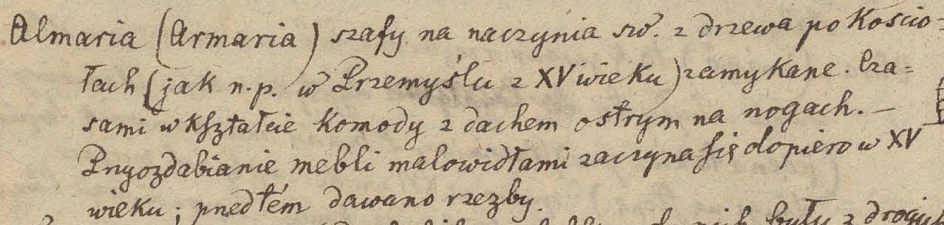 Almaria (Armaria) szafy na naczynia św. z drzewa po Kościo-
łach (jak n.p. w Przemyślu z XV wieku) zamykane. Cza=
sami w kształcie komody z dachem ostrym na nogach. —
Przyozdabianie mebli malowidłami zaczyna się dopiero w XV
wieku; przedtém dawano rzezby.
były z drogich